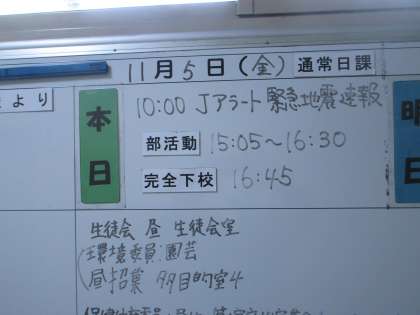 より
11月5日(金) 通常日課
本日
10:00 Jアラート 緊急地震速報
部活動 15:05～16:30
完全下校 16:45
明日
生徒会 昼 生徒会室
環境委員 園芸
昼 招集 多目的室4